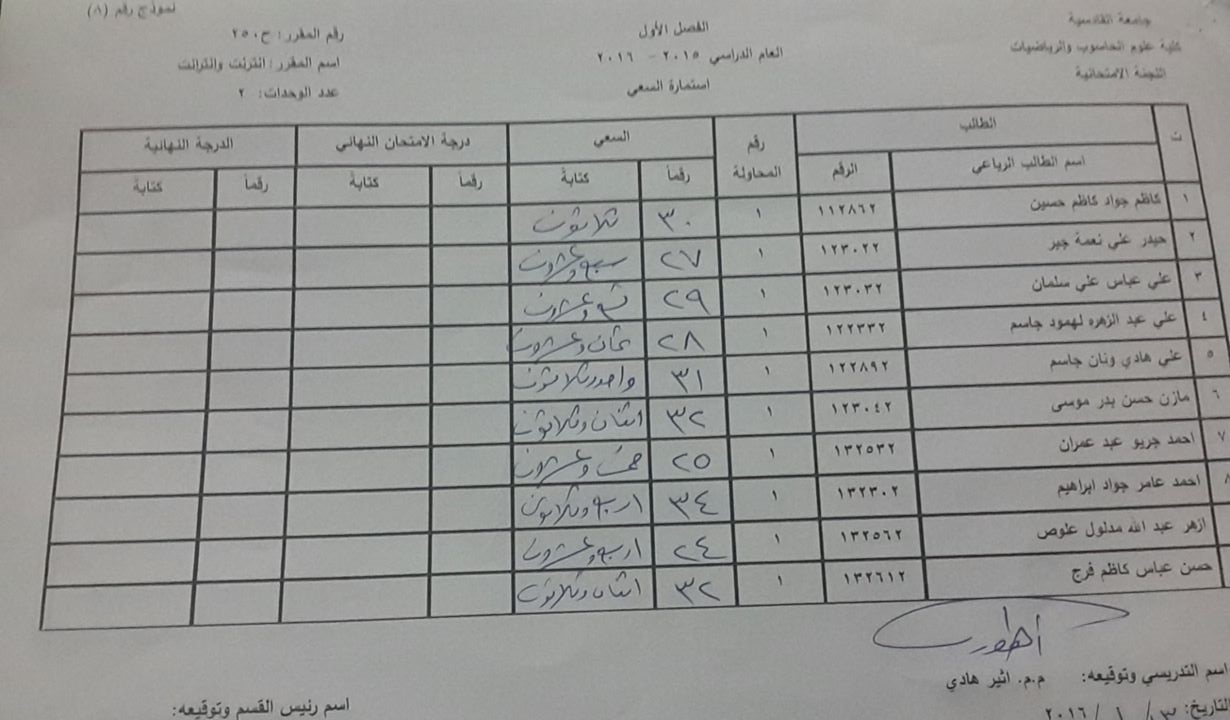 جامعة القادسية
كلية علوم الحاسوب والرياضيات
اللجنة الامتحانية
الفصل الأول
العام الدراسي ٢٠١٥ - ٢٠١٦
استمارة السعي
نموذج رقم (٨)
رقم المقرر: ح٢٥٠
اسم المقرر: انترنت وانترانت
عدد الوحدات: ٢
ت الطالب رقم المحاولة السعي درجة الامتحان النهائي الدرجة النهائية
اسم الطالب الرباعي الرقم رقماً كتابة رقماً كتابة رقماً كتابة
١ كاظم جواد كاظم حسين ١١٢٨٦٢ ١ ٣٠ ثلاثون
٢ حيدر علي نعمة جبر ١٢٣٠٢٢ ١ ٢٧ سبع وعشرون
٣ علي عباس علي سلمان ١٢٣٠٣٢ ١ ٢٩ تسع وعشرون
٤ علي عبد الزهره لهمود جاسم ١٢٢٣٣٢ ١ ٢٨ ثمان وعشرون
٥ علي هادي ونان جاسم ١٢٢٨٩٢ ١ ٣١ واحد وثلاثون
٦ مازن حسن بدر موسى ١٢٣٠٤٢ ١ ٣٢ اثنان وثلاثون
٧ احمد جريو عبد عمران ١٣٢٥٣٢ ١ ٢٥ خمس وعشرون
٨ احمد عامر جواد ابراهيم ١٣٢٣٠٢ ١ ٣٤ اربع وثلاثون
ازهر عبد الله مدلول علوص ١٣٢٥٦٢ ١ ٢٤ اربع وعشرون
حسن عباس كاظم فرج ١٣٢٦١٢ ١ ٣٢ اثنان وثلاثون
اسم التدريسي وتوقيعه: م.م. اثير هادي
التاريخ: ٣ / ١ / ٢٠١٦
اسم رئيس القسم وتوقيعه: